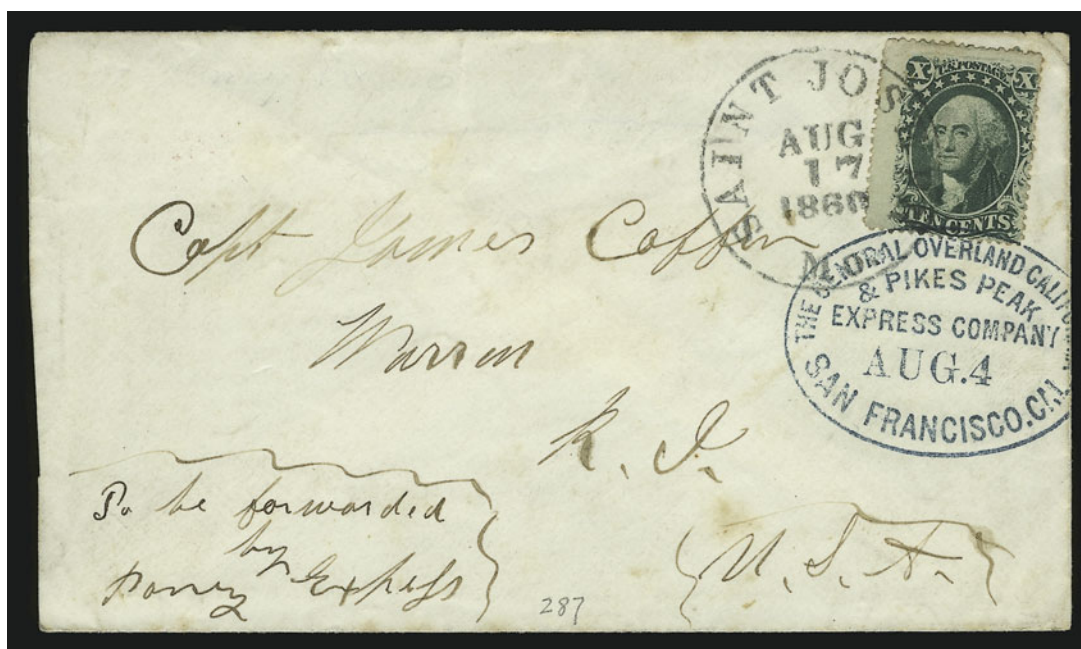 SAINT JOS
MO.
AUG
17
1860
X U.S. POSTAGE X
TEN CENTS
THE CENTRAL OVERLAND CALIFORNIA
& PIKES PEAK
EXPRESS COMPANY
AUG.4
SAN FRANCISCO.CAL
Capt James Coffin
Warren
R. I.
U. S. A.
To be forwarded
by
Poney Express
287